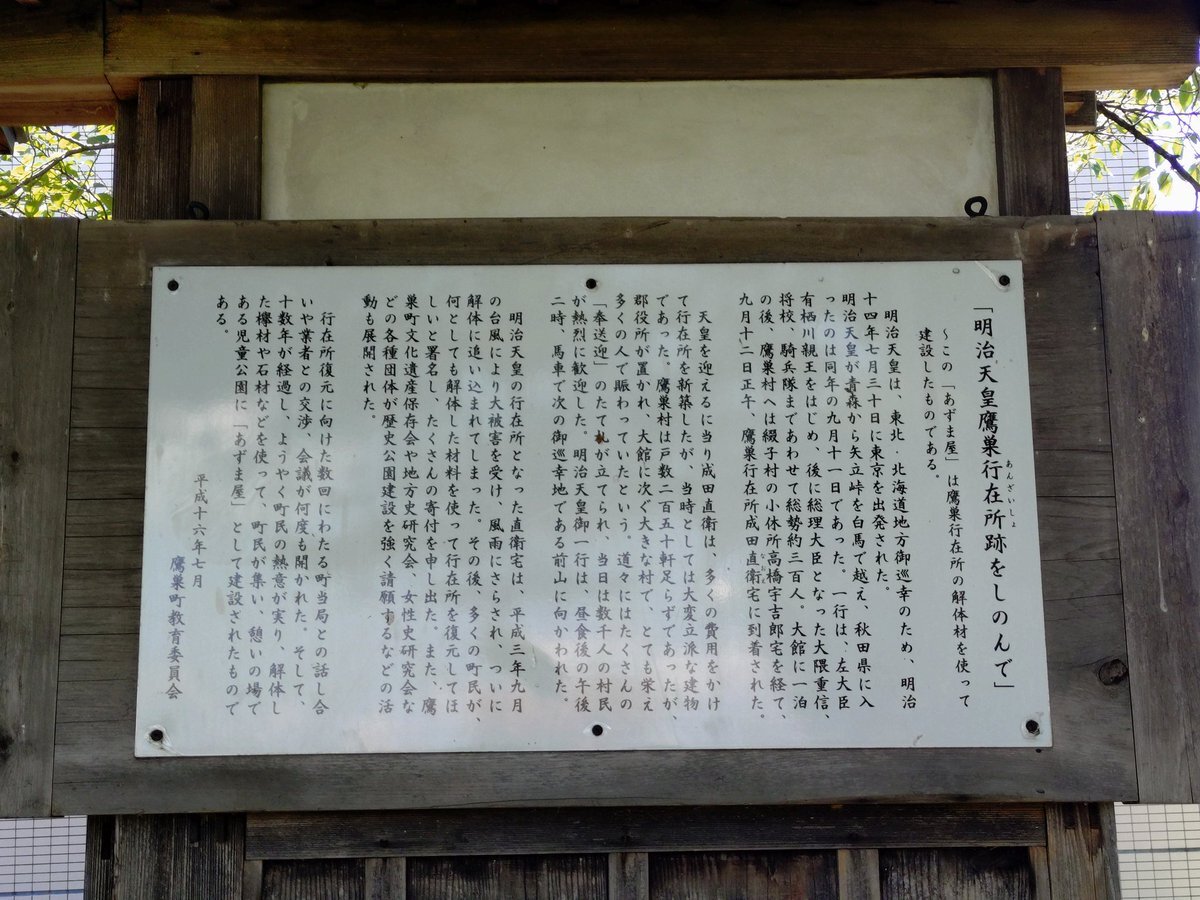 「明治天皇鷹巣行在所跡をしのんで」
あんざいしょ
～この「あずま屋」は鷹巣行在所の解体材を使って
建設したものである。
明治天皇は、東北・北海道地方御巡幸のため、明治
十四年七月三十日に東京を出発された。
明治天皇が青森から矢立峠を白馬で越え、秋田県に入
ったのは同年の九月十一日であった。一行は、左大臣
有栖川親王をはじめ、後に総理大臣となった大隈重信、
将校、騎兵隊まであわせて総勢約三百人。大館に一泊
の後、鷹巣村へは綴子村の小休所高橋宇吉郎宅を経て、
九月十二日正午、鷹巣行在所成田直衛宅に到着された。
なおえ
天皇を迎えるに当り成田直衛は、多くの費用をかけ
て行在所を新築したが、当時としては大変立派な建物
であった。鷹巣村は戸数二百五十軒足らずであったが、
郡役所が置かれ、大館に次ぐ大きな村で、とても栄え
多くの人で賑わっていたという。道々にはたくさんの
「奉送迎」のたて札が立てられ、当日は数千人の村民
が熱烈に歓迎した。明治天皇御一行は、昼食後の午後
二時、馬車で次の御巡幸地である前山に向かわれた。
明治天皇の行在所となった直衛宅は、平成三年九月
の台風により大被害を受け、風雨にさらされ、ついに
解体に追い込まれてしまった。その後、多くの町民が、
何としても解体した材料を使って行在所を復元してほ
しいと署名し、たくさんの寄付を申し出た。また、鷹
巣町文化遺産保存会や地方史研究会、女性史研究会な
どの各種団体が歴史公園建設を強く請願するなどの活
動も展開された。
行在所復元に向けた数回にわたる町当局との話し合
いや業者との交渉、会議が何度も開かれた。そして、
十数年が経過し、ようやく町民の熱意が実り、解体し
た欅材や石材などを使って、町民が集い、憩いの場で
ある児童公園に「あずま屋」として建設されたもので
ある。
平成十六年七月
鷹巣町教育委員会